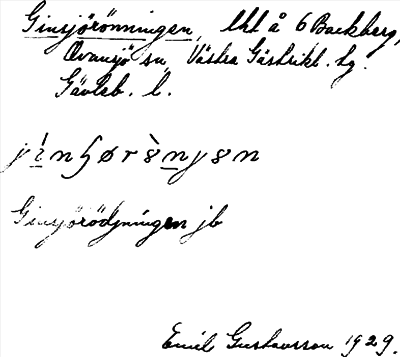 Ginsjörönningen, lht å 6 Backberg,
Ovansjö sn, Västra Gästrikl. hg.
Gävleb. l.
Ginsjörödjningen jb
Emil Gustavsson 1929.